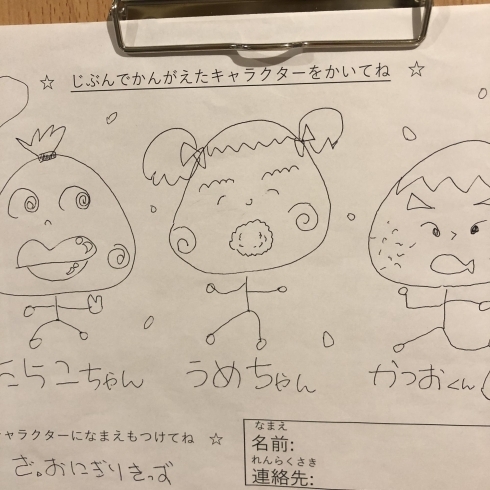 ☆ じぶんでかんがえたキャラクターをかいてね ☆
たらこちゃん うめちゃん かつおくん
ャラクターになまえもつけてね ☆
ざ。おにぎりきっず
なまえ
名前:
れんらくさき
連絡先: